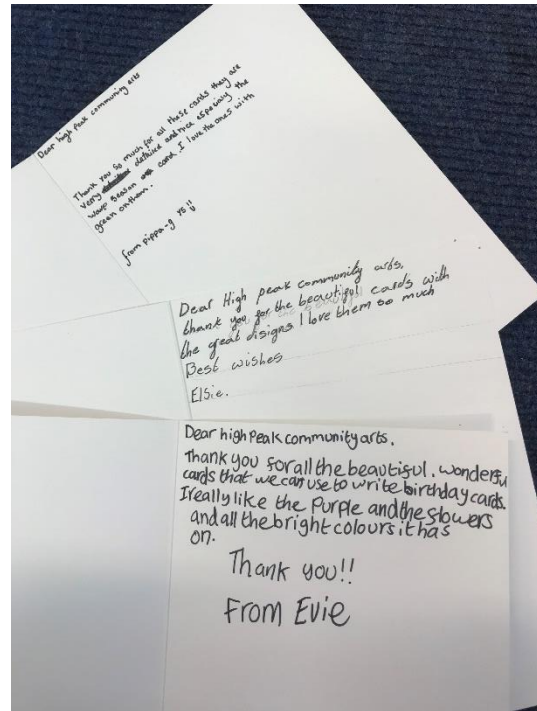 Dear high peak community arts
Thank you so much for all these cards they are
very detailed and nice especialy the
season card. I love the ones with
green on them.
from pippa-g
Dear High peak community arts,
thank you for the beautiful cards with
the great disigns I love them so much
Best wishes
Elsie.
Dear high Peak community arts,
Thank you for all the beautiful, wonderful
cards that we can use to write birthday cards.
I really like the Purple and the flowers
and all the bright colours it has
on.
Thank you!!
From Evie